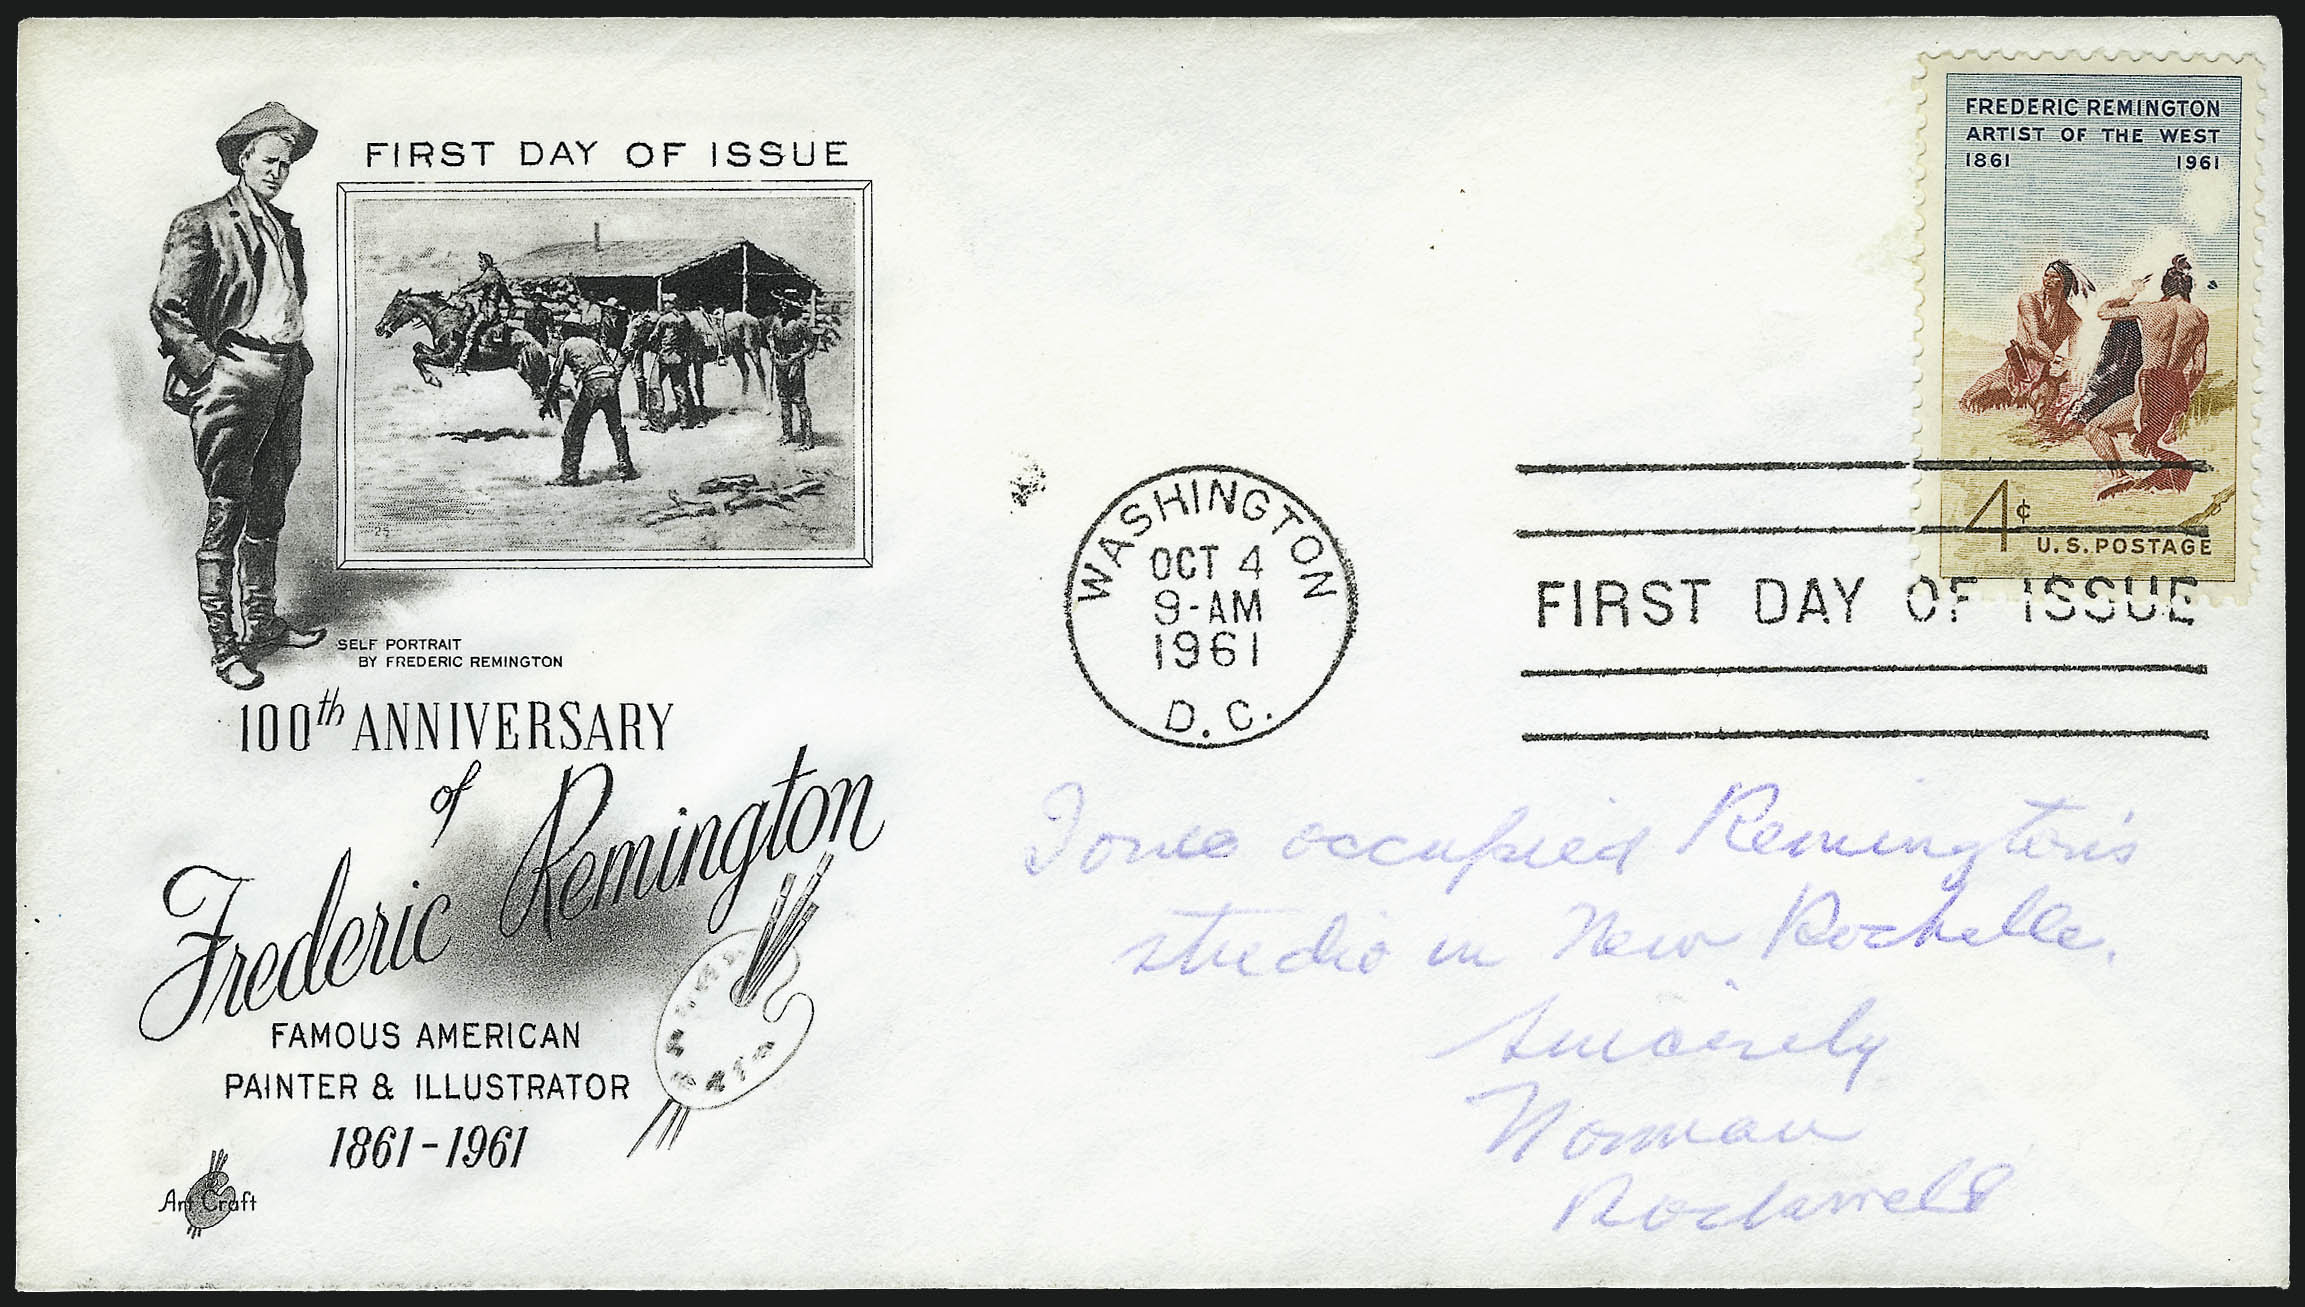 FIRST DAY OF ISSUE
25
SELF PORTRAIT
BY FREDERIC REMINGTON
100th ANNIVERSARY
of
Frederic Remington
FAMOUS AMERICAN
PAINTER & ILLUSTRATOR
1861-1961
Art Craft
FREDERIC REMINGTON
ARTIST OF THE WEST
1861 1961
4¢
U.S. POSTAGE
WASHINGTON
OCT 4
9-AM
1961
D.C.
FIRST DAY OF ISSUE
I once occupied Remington's
studio in New Rochelle.
Sincerely
Norman
Rockwell